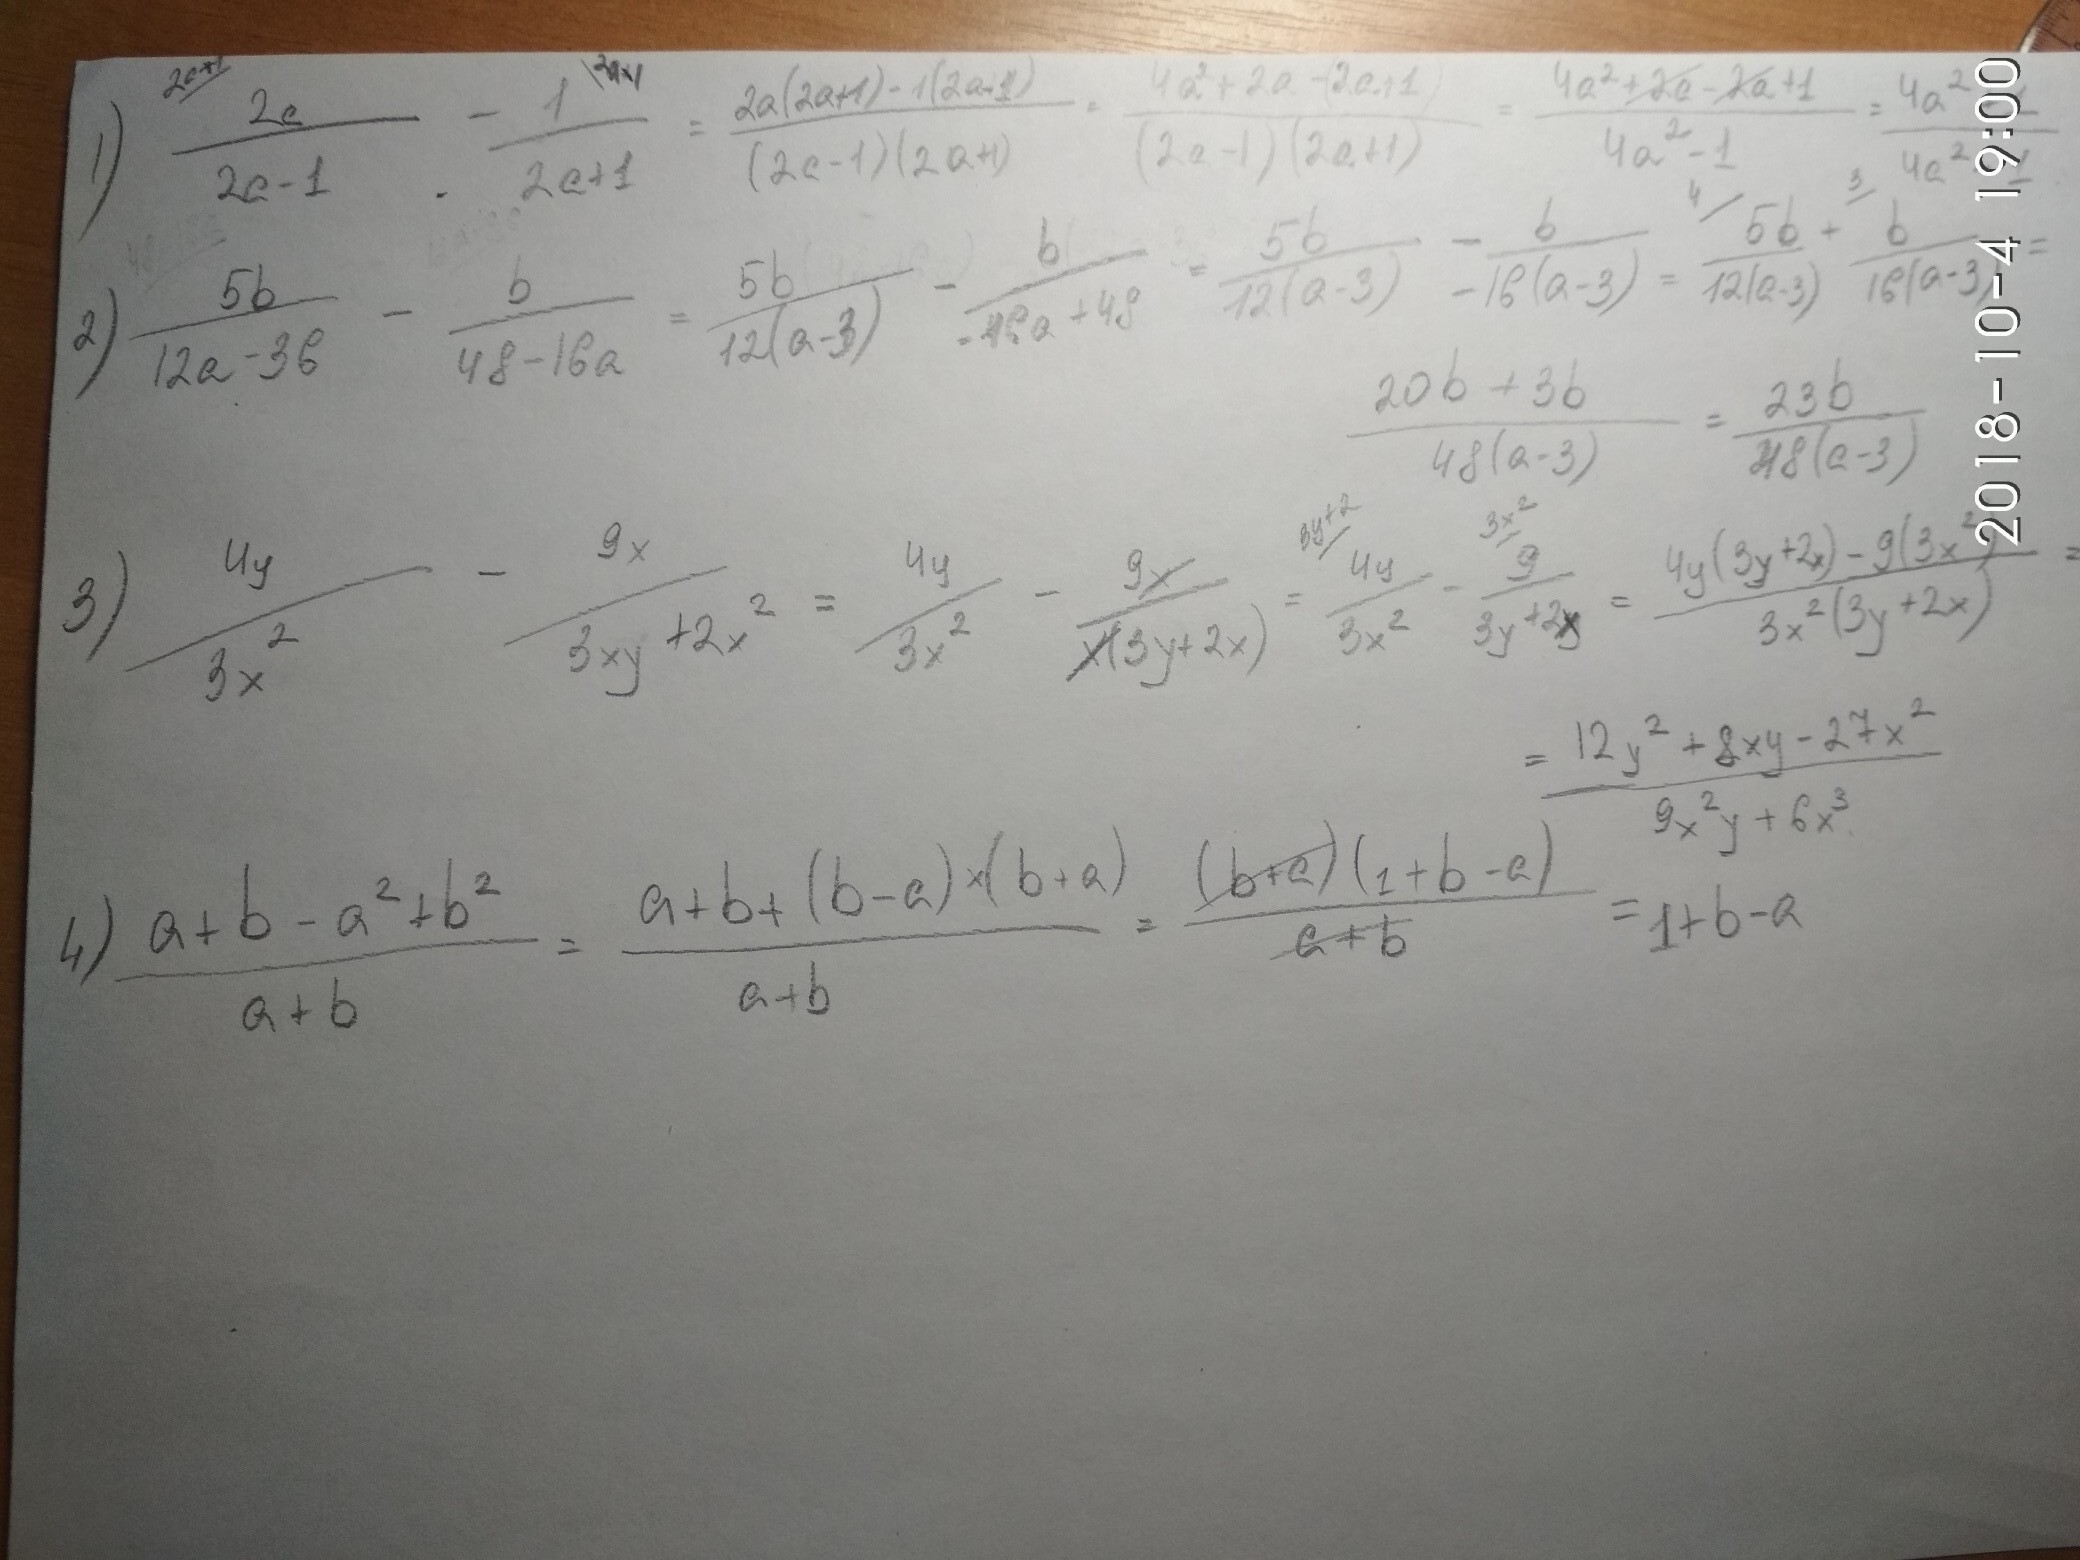 2a+1 2a-1
1) 2a/(2a-1) - 1/(2a+1) = (2a(2a+1)-1(2a-1))/((2a-1)(2a+1)) = (4a²+2a-(2a+1))/((2a-1)(2a+1)) = (4a²+2a-2a+1)/(4a²-1) =
4 3
2) 5b/(12a-36) - b/(48-16a) = 5b/(12(a-3)) - b/(-16a+48) = 5b/(12(a-3)) - b/(-16(a-3)) = 5b/(12(a-3)) + b/(16(a-3)) =
(20b+3b)/(48(a-3)) = 23b/(48(a-3))
3y+2 3x²
3) 4y/(3x²) - 9x/(3xy+2x²) = 4y/(3x²) - 9x/(x(3y+2x)) = 4y/(3x²) - 9/(3y+2x) = (4y(3y+2x)-9(3x²))/(3x²(3y+2x)) =
= (12y²+8xy-27x²)/(9x²y+6x³)
4) (a+b-a²+b²)/(a+b) = (a+b+(b-a)×(b+a))/(a+b) = ((b+a)(1+b-a))/(a+b) = 1+b-a
2018-10-4 19:00